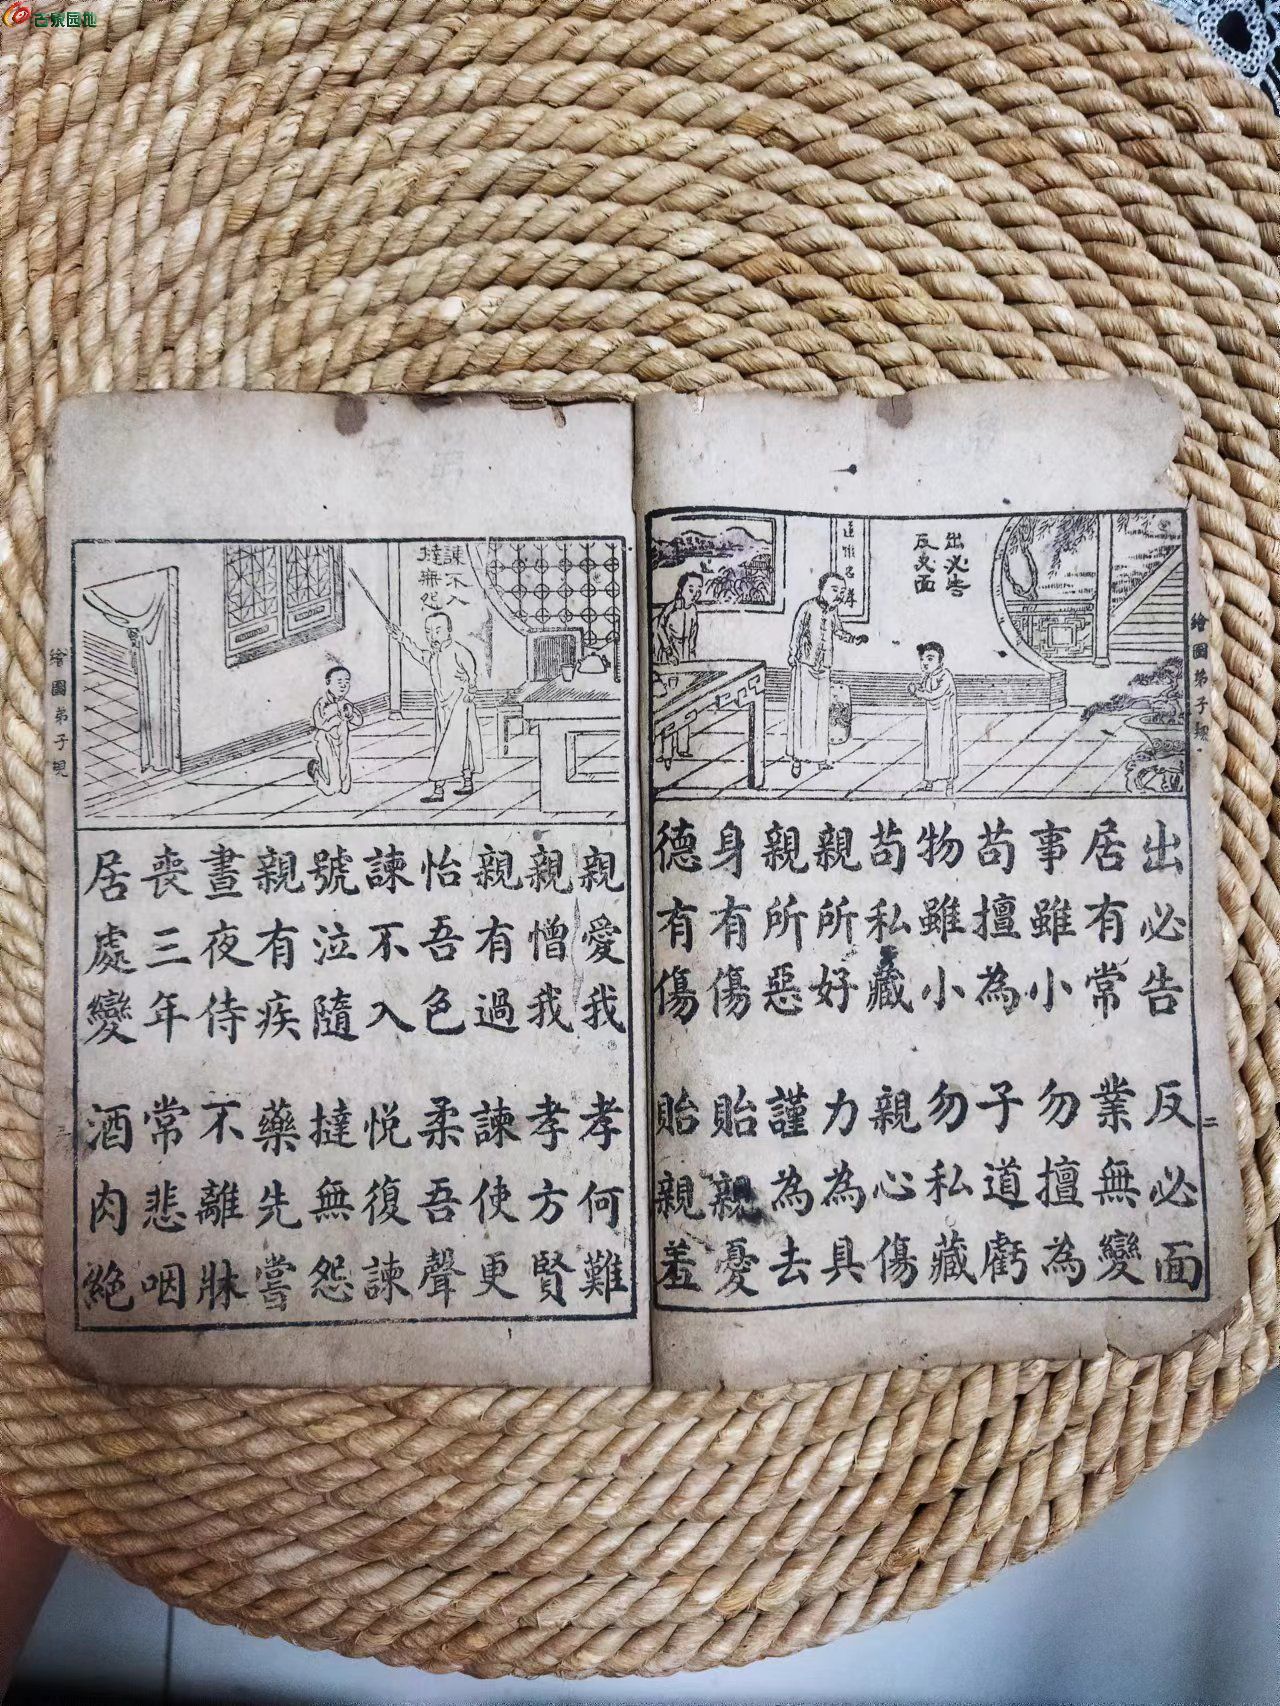 古泉园地
繪圖弟子規
二
出必告
反必面
出必告 反必面
居有常 業無變
事雖小 勿擅為
苟擅為 子道虧
物雖小 勿私藏
苟私藏 親心傷
親所好 力為具
親所惡 謹為去
身有傷 貽親憂
德有傷 貽親羞
諫不入
撻無怨
親愛我 孝何難
親憎我 孝方賢
親有過 諫使更
怡吾色 柔吾聲
諫不入 悅復諫
號泣隨 撻無怨
親有疾 藥先嘗
晝夜侍 不離牀
喪三年 常悲咽
居處變 酒肉絕
繪圖弟子規
三